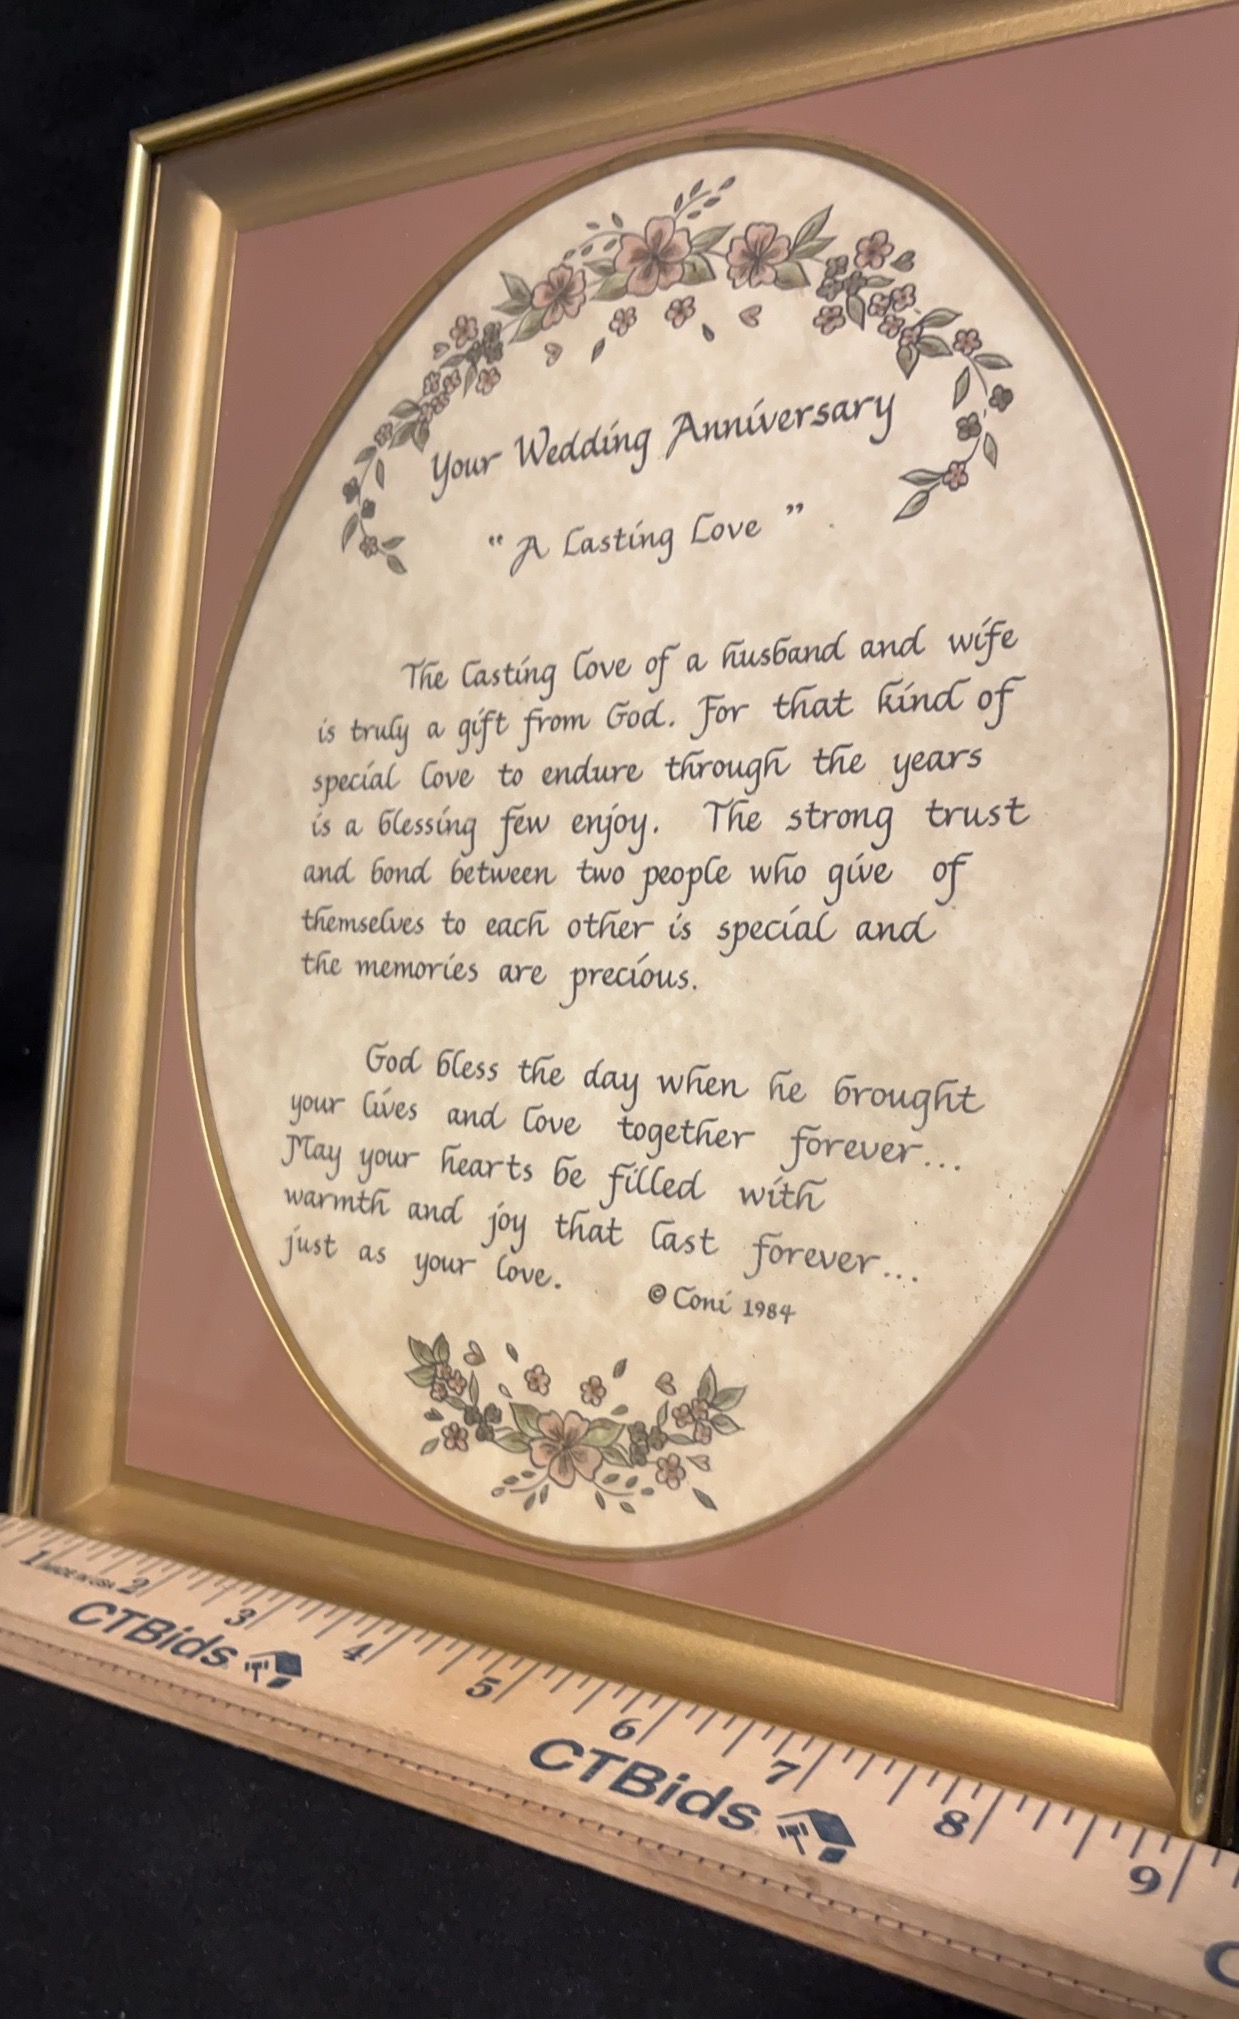 Your Wedding Anniversary
“ A Lasting Love ”
The lasting love of a husband and wife
is truly a gift from God. For that kind of
special love to endure through the years
is a blessing few enjoy. The strong trust
and bond between two people who give of
themselves to each other is special and
the memories are precious.
God bless the day when he brought
your lives and love together forever...
May your hearts be filled with
warmth and joy that last forever...
just as your love.
© Coni 1984
1 MADE IN USA 2 3 4 5 6 7 8 9
CTBids CTBids C